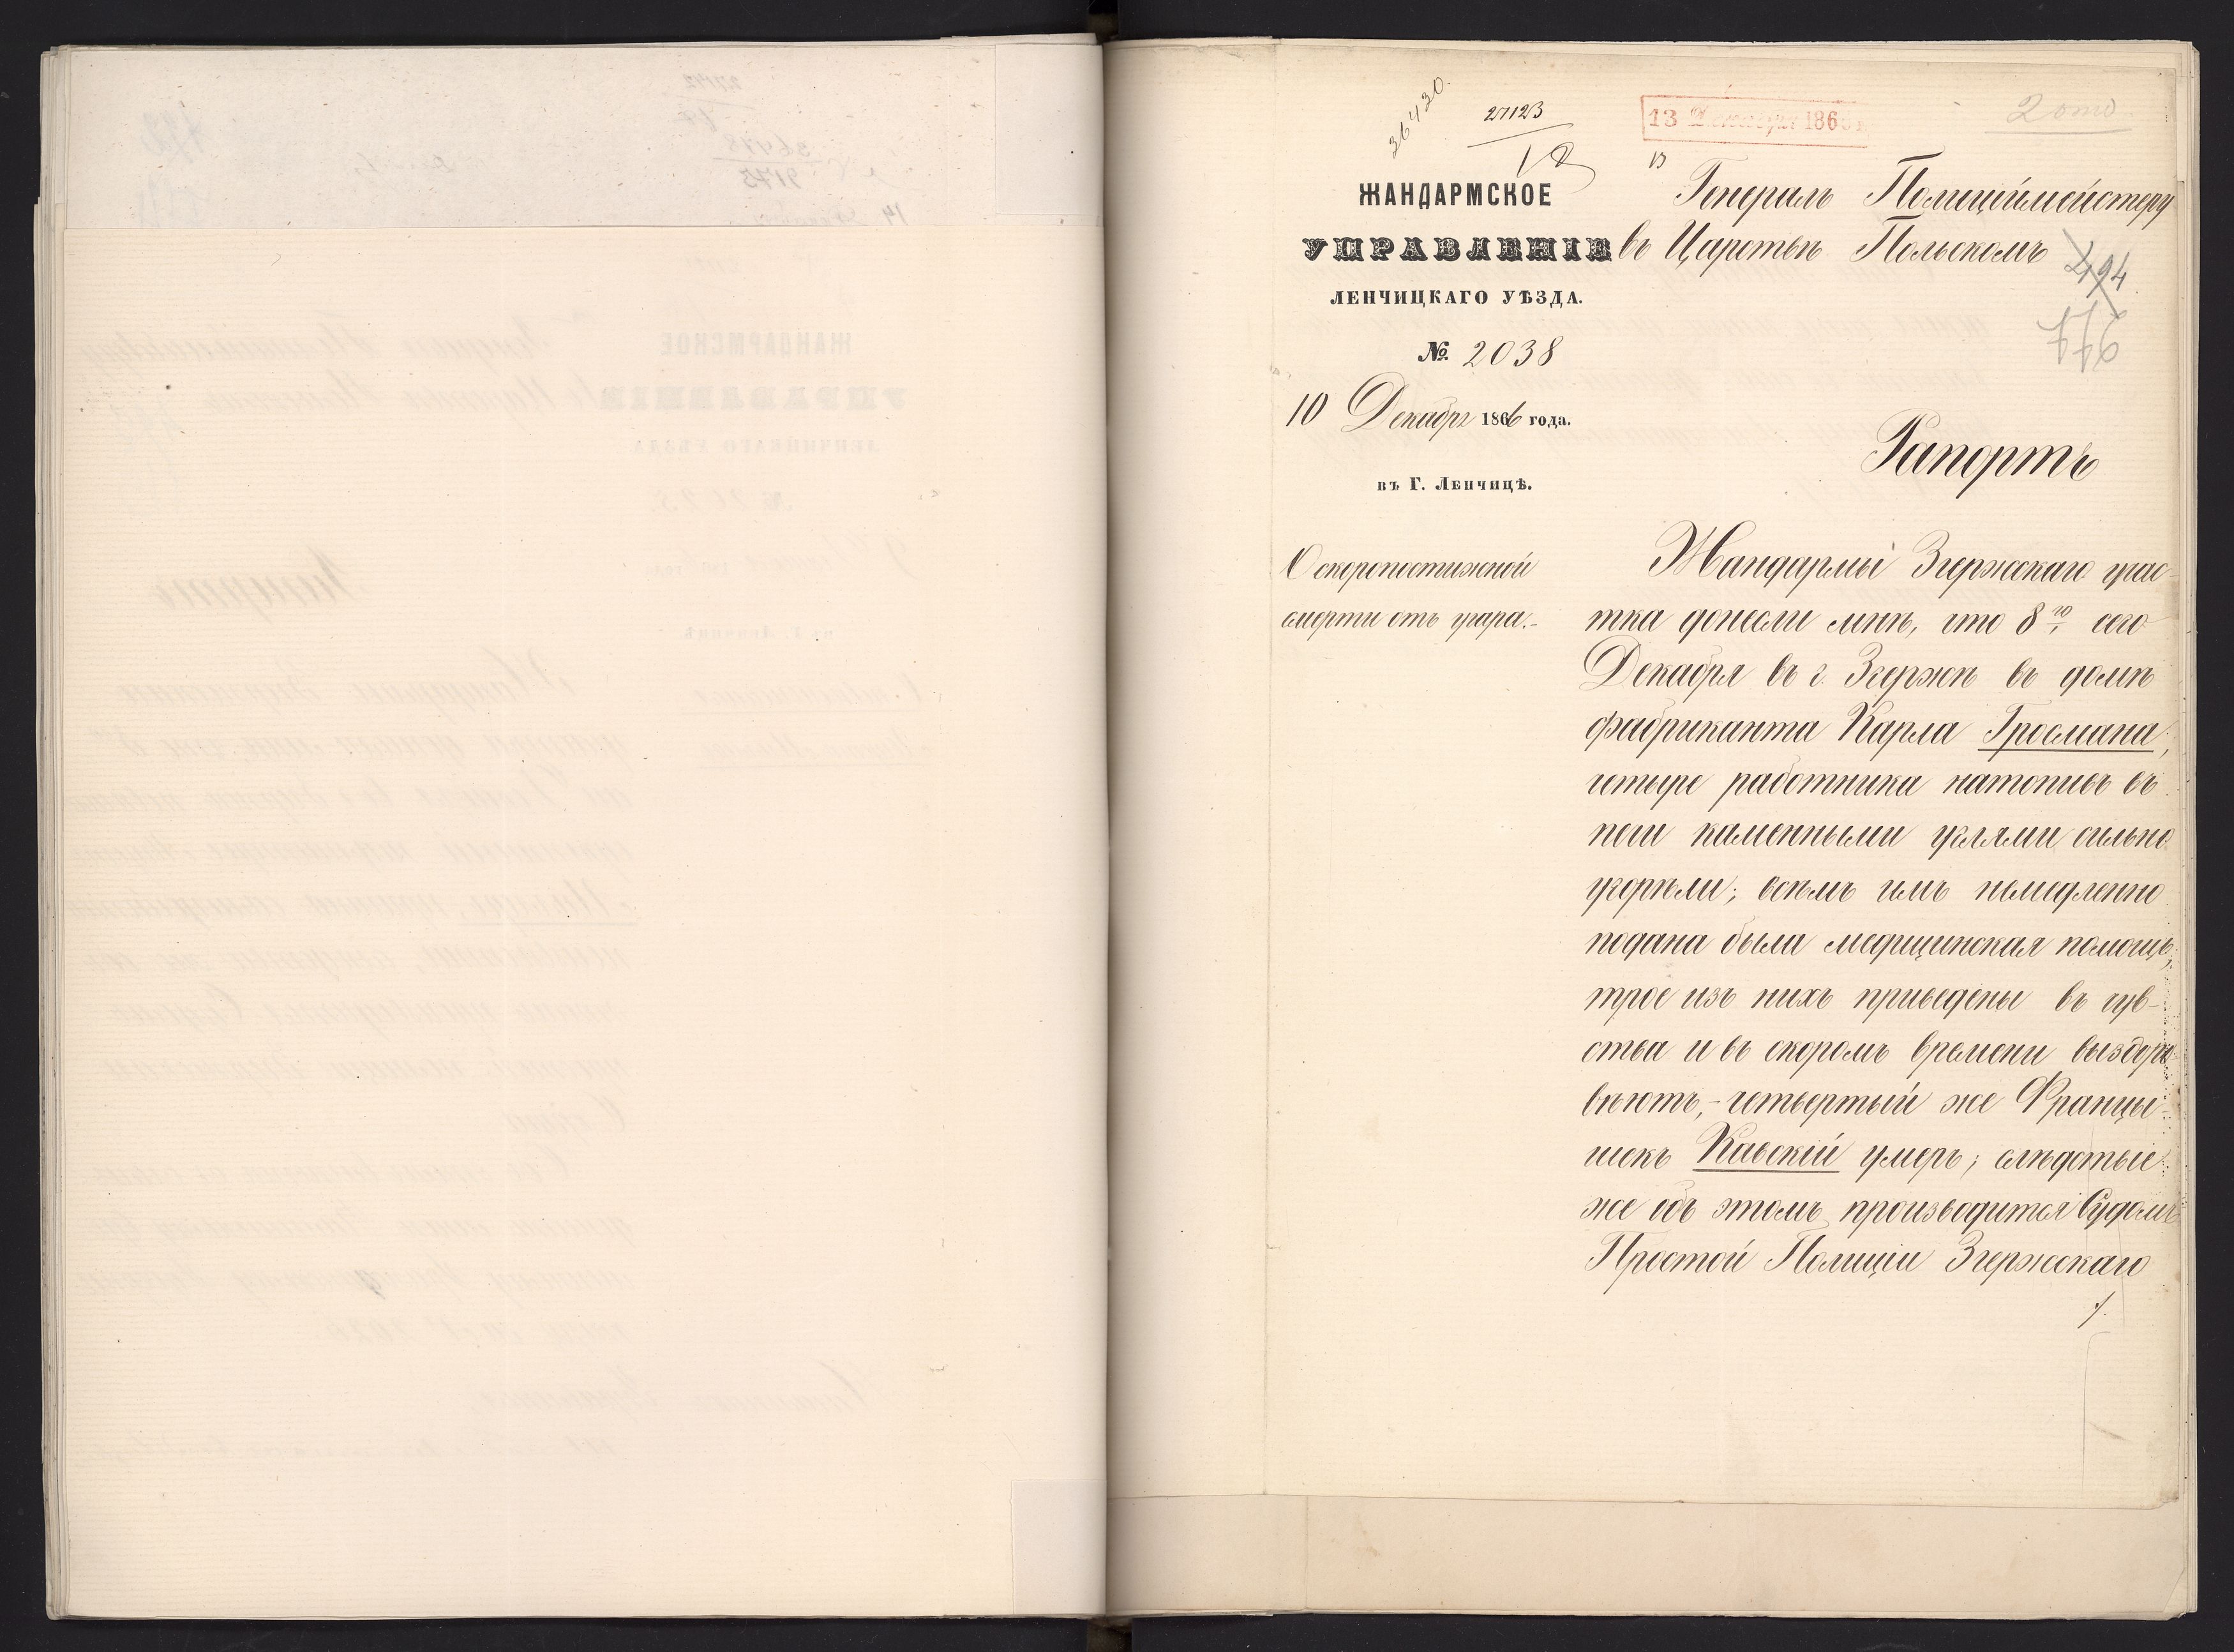 36430.
27123
12
13 Декабря 186
2 отд
13
ЖАНДАРМСКОЕ
УПРАВЛЕНІЕ
ЛЕНЧИЦКАГО УѢЗДА.
№ 2038
10 Декабря 1866 года.
въ Г. Ленчицѣ.
Генералъ Полиціймейстеру
въ Царствѣ Польскомъ
294
977
Рапортъ
О скоропостижной
смерти отъ угара.-
Жандармы Згержскаго учас-
тка донесли мнѣ, что 8го сего
Декабря въ г. Згержѣ въ домѣ
фабриканта Карла Гросмана,
четыре работника натопивъ въ
печи каменными углями сильно
угорѣли; всѣмъ имъ немедленно
подана была медицинская помощь,
трое изъ нихъ приведены въ чув-
ства и въ скоромъ времени выздора-
вѣютъ,- четвертый же Францы-
шекъ Кавскій умеръ; слѣдствіе
же объ этомъ производится Судомъ
Простой Полиціи Згержскаго